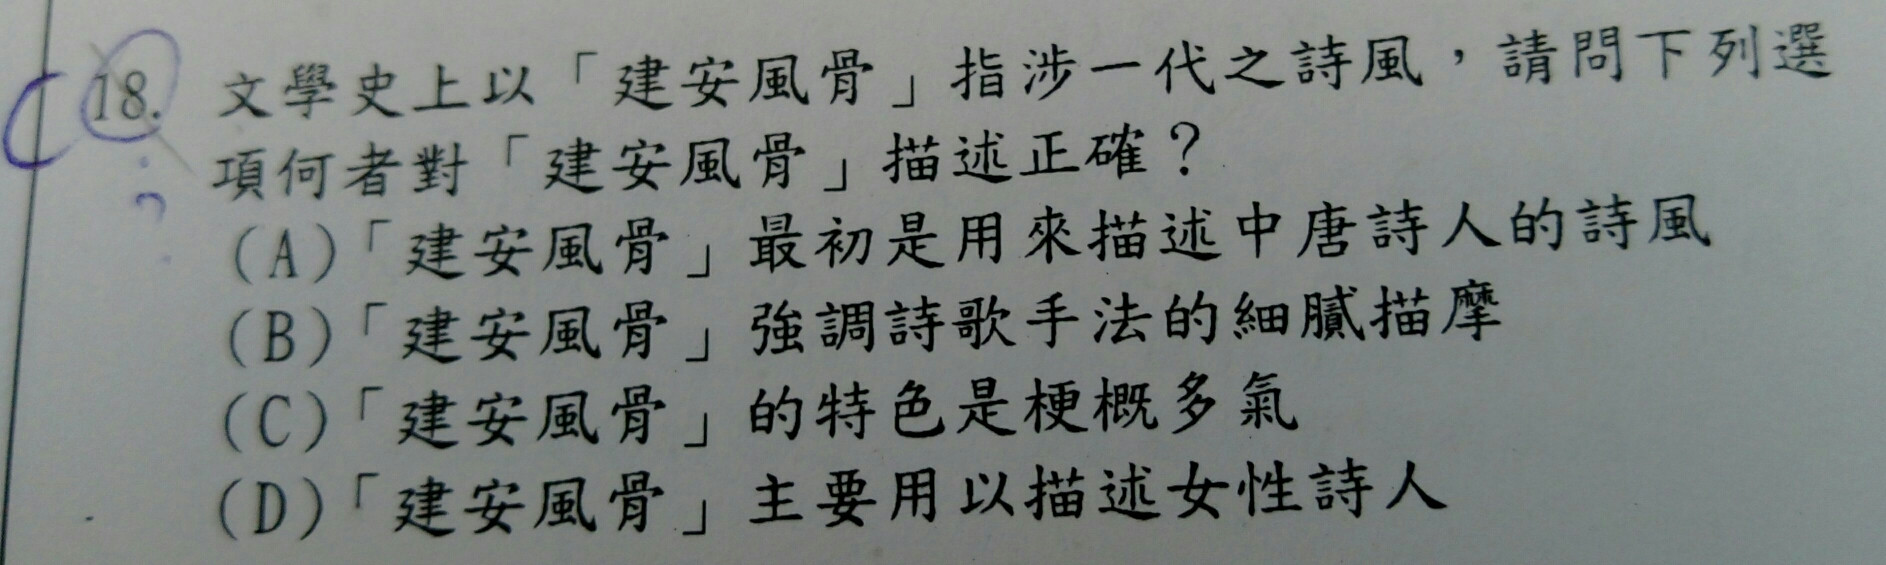 18. 文學史上以「建安風骨」指涉一代之詩風，請問下列選
項何者對「建安風骨」描述正確？
(A)「建安風骨」最初是用來描述中唐詩人的詩風
(B)「建安風骨」強調詩歌手法的細膩描摩
(C)「建安風骨」的特色是梗概多氣
(D)「建安風骨」主要用以描述女性詩人